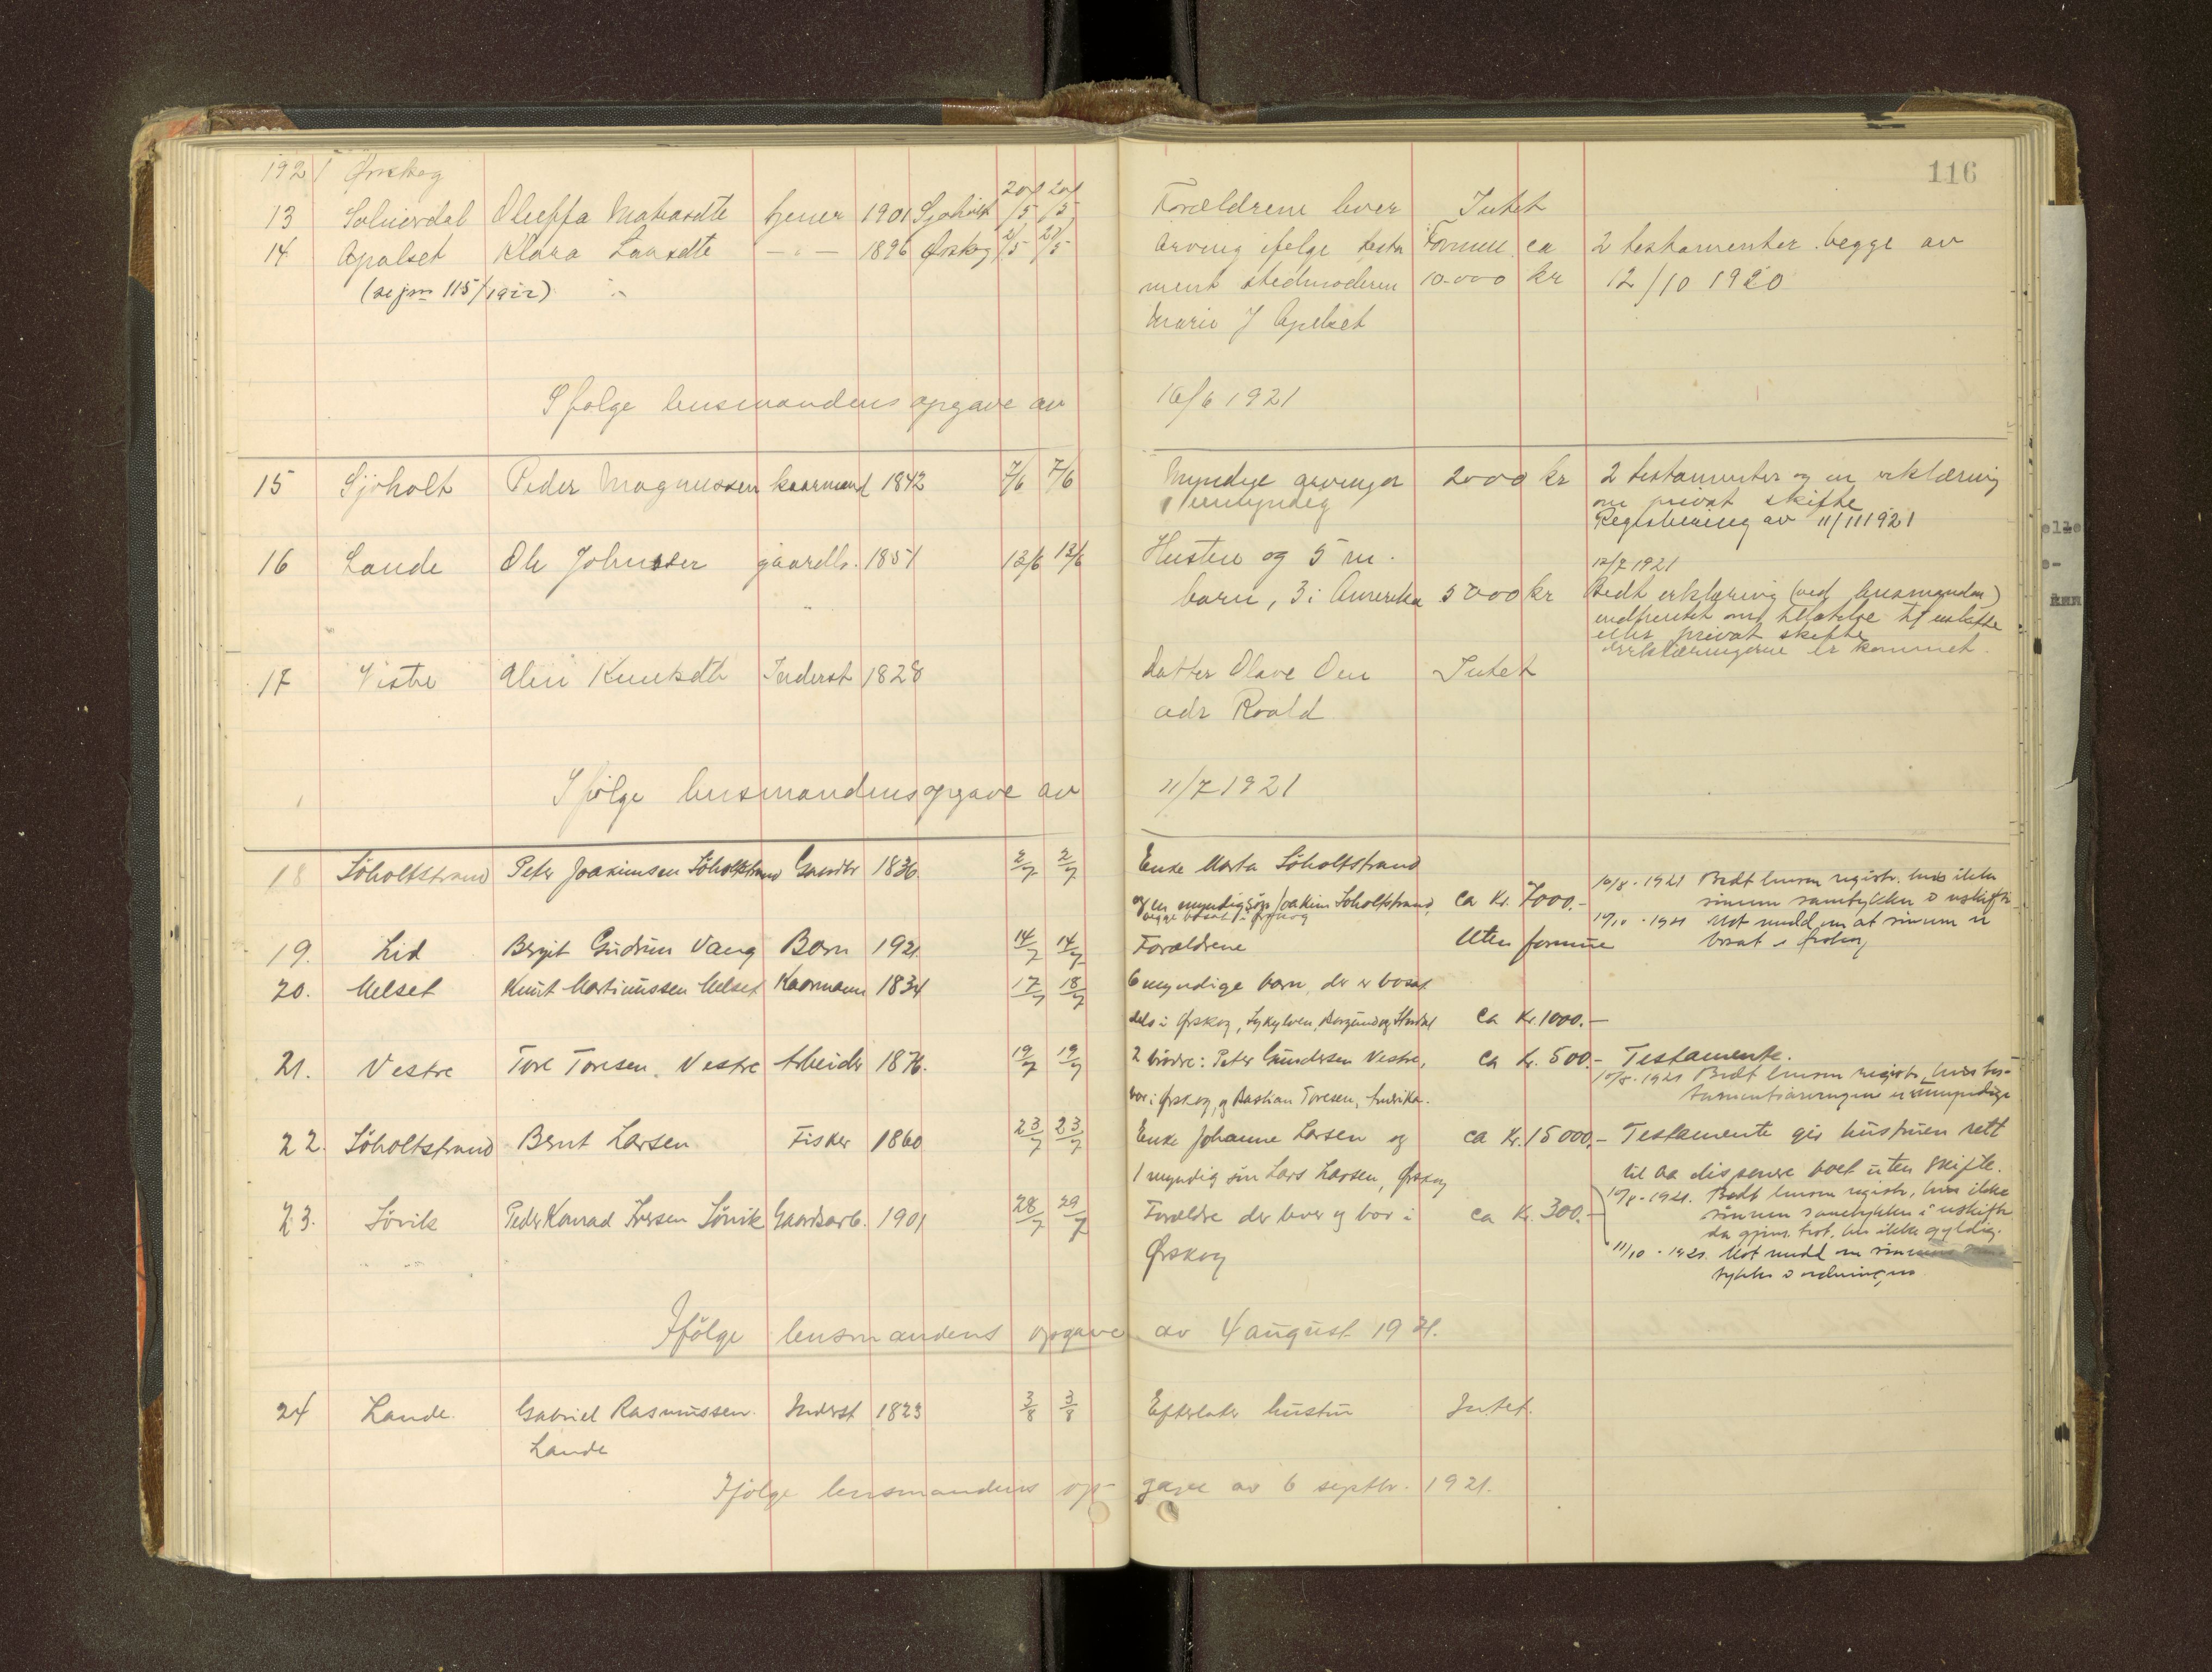 116
1921 Ørskog
13 Solnørdal Oluffa Matiasdtr tjener 1901 Sjøholt 20/5 20/5 Forældrene lever Intet
14 Apalset Klara Larsdtr — " — 1896 Ørskog 2/5 Arving ifølge testa Formue ca 2 testamenter begge av
(se jrn 115/1922) ment stedmoderen 10.000 kr 12/10 1920
Marie J Apelset
Ifølge lensmandens opgave av 16/6 1921
15 Sjøholt Peder Magnussen kaarmand 1842 7/6 7/6 Myndige arvinger 2000 kr 2 testamenter og en erklæring
1 umyndig om privat skifte
Registrering av 11/11 1921
16 Lande Ole Johnsen gaardbr. 1851 12/6 12/6 Hustru og 5 m. 12/7 1921
barn, 3 i Amerika 5000 kr Bedt erklæring (ved lensmanden)
indhentet om tilladelse til uskifte
eller privat skifte
Erklæringerne er kommet.
17 Vistre Knutsdtr Inderst 1828 Datter Olave Oen Intet
adr Roald
Ifølge lensmandens opgave av 11/7 1921
18 Söholtstrand Peter Joakimsen Söholtstrand Gaardbr 1836. 2/7 2/7 Enke Marta Söholtstrand
og en myndig sön Joakim Söholtstrand, ca Kr. 7000.- 10/8 - 1921 Bedt lensm registr. hvis ikke
begge bosat i Ørskog sönnen samtykker i uskifte
19. Lid Bergit Gudrun Vaag Barn 1921 14/7 14/7 Forældrene Uten formue 10/10 - 1921 Mot medd om at sönnen er
bosat i
20. Melset Knut Martinussen Melset Kaarmann 1834 17/7 18/7 6 myndige barn, der er bosat
dels i Ørskog, Sykylven, Borgund og Stordal ca Kr. 1000.-
21. Vestre Tore Toresen Vestre Arbeider 1876. 19/7 19/7 2 brödre: Peter Gundersen Vestre, ca kr. 500.- Testamente.
bor i Ørskog, og Bastian Toresen, Amerika. 10/8 - 1921 Bedt lensm registr, hvis tes-
tamentsarvingene er umyndige
22. Söholtstrand Bernt Larsen Fisker 1860 23/7 23/7 Enke Johanne Larsen og ca Kr. 15000.- Testamente gir hustruen rett
1 myndig sön Lars Larsen, Ørskog til aa disponere boet uten skifte.
10/8 - 1921. Bedt lensm registr, hvis ikke
23. Sövik Peder Konrad Iversen Sövik Gaardsarb. 1901 28/7 29/7 Forældre der lever og bor i ca Kr. 300.- sönnen samtykker i uskifte
Ørskog da gjens. test. er ikke gyldig.
11/10 - 1921. Mot medd om sönnens
tykke i ordningen
Ifölge lensmandens opgave av 4 august 1921.
24 Lande. Gabriel Rasmussen Inderst 1823 3/8 3/8 Efterlater hustru Intet.
Lande
Ifölge lensmandens op- gave av 6 septbr. 1921.